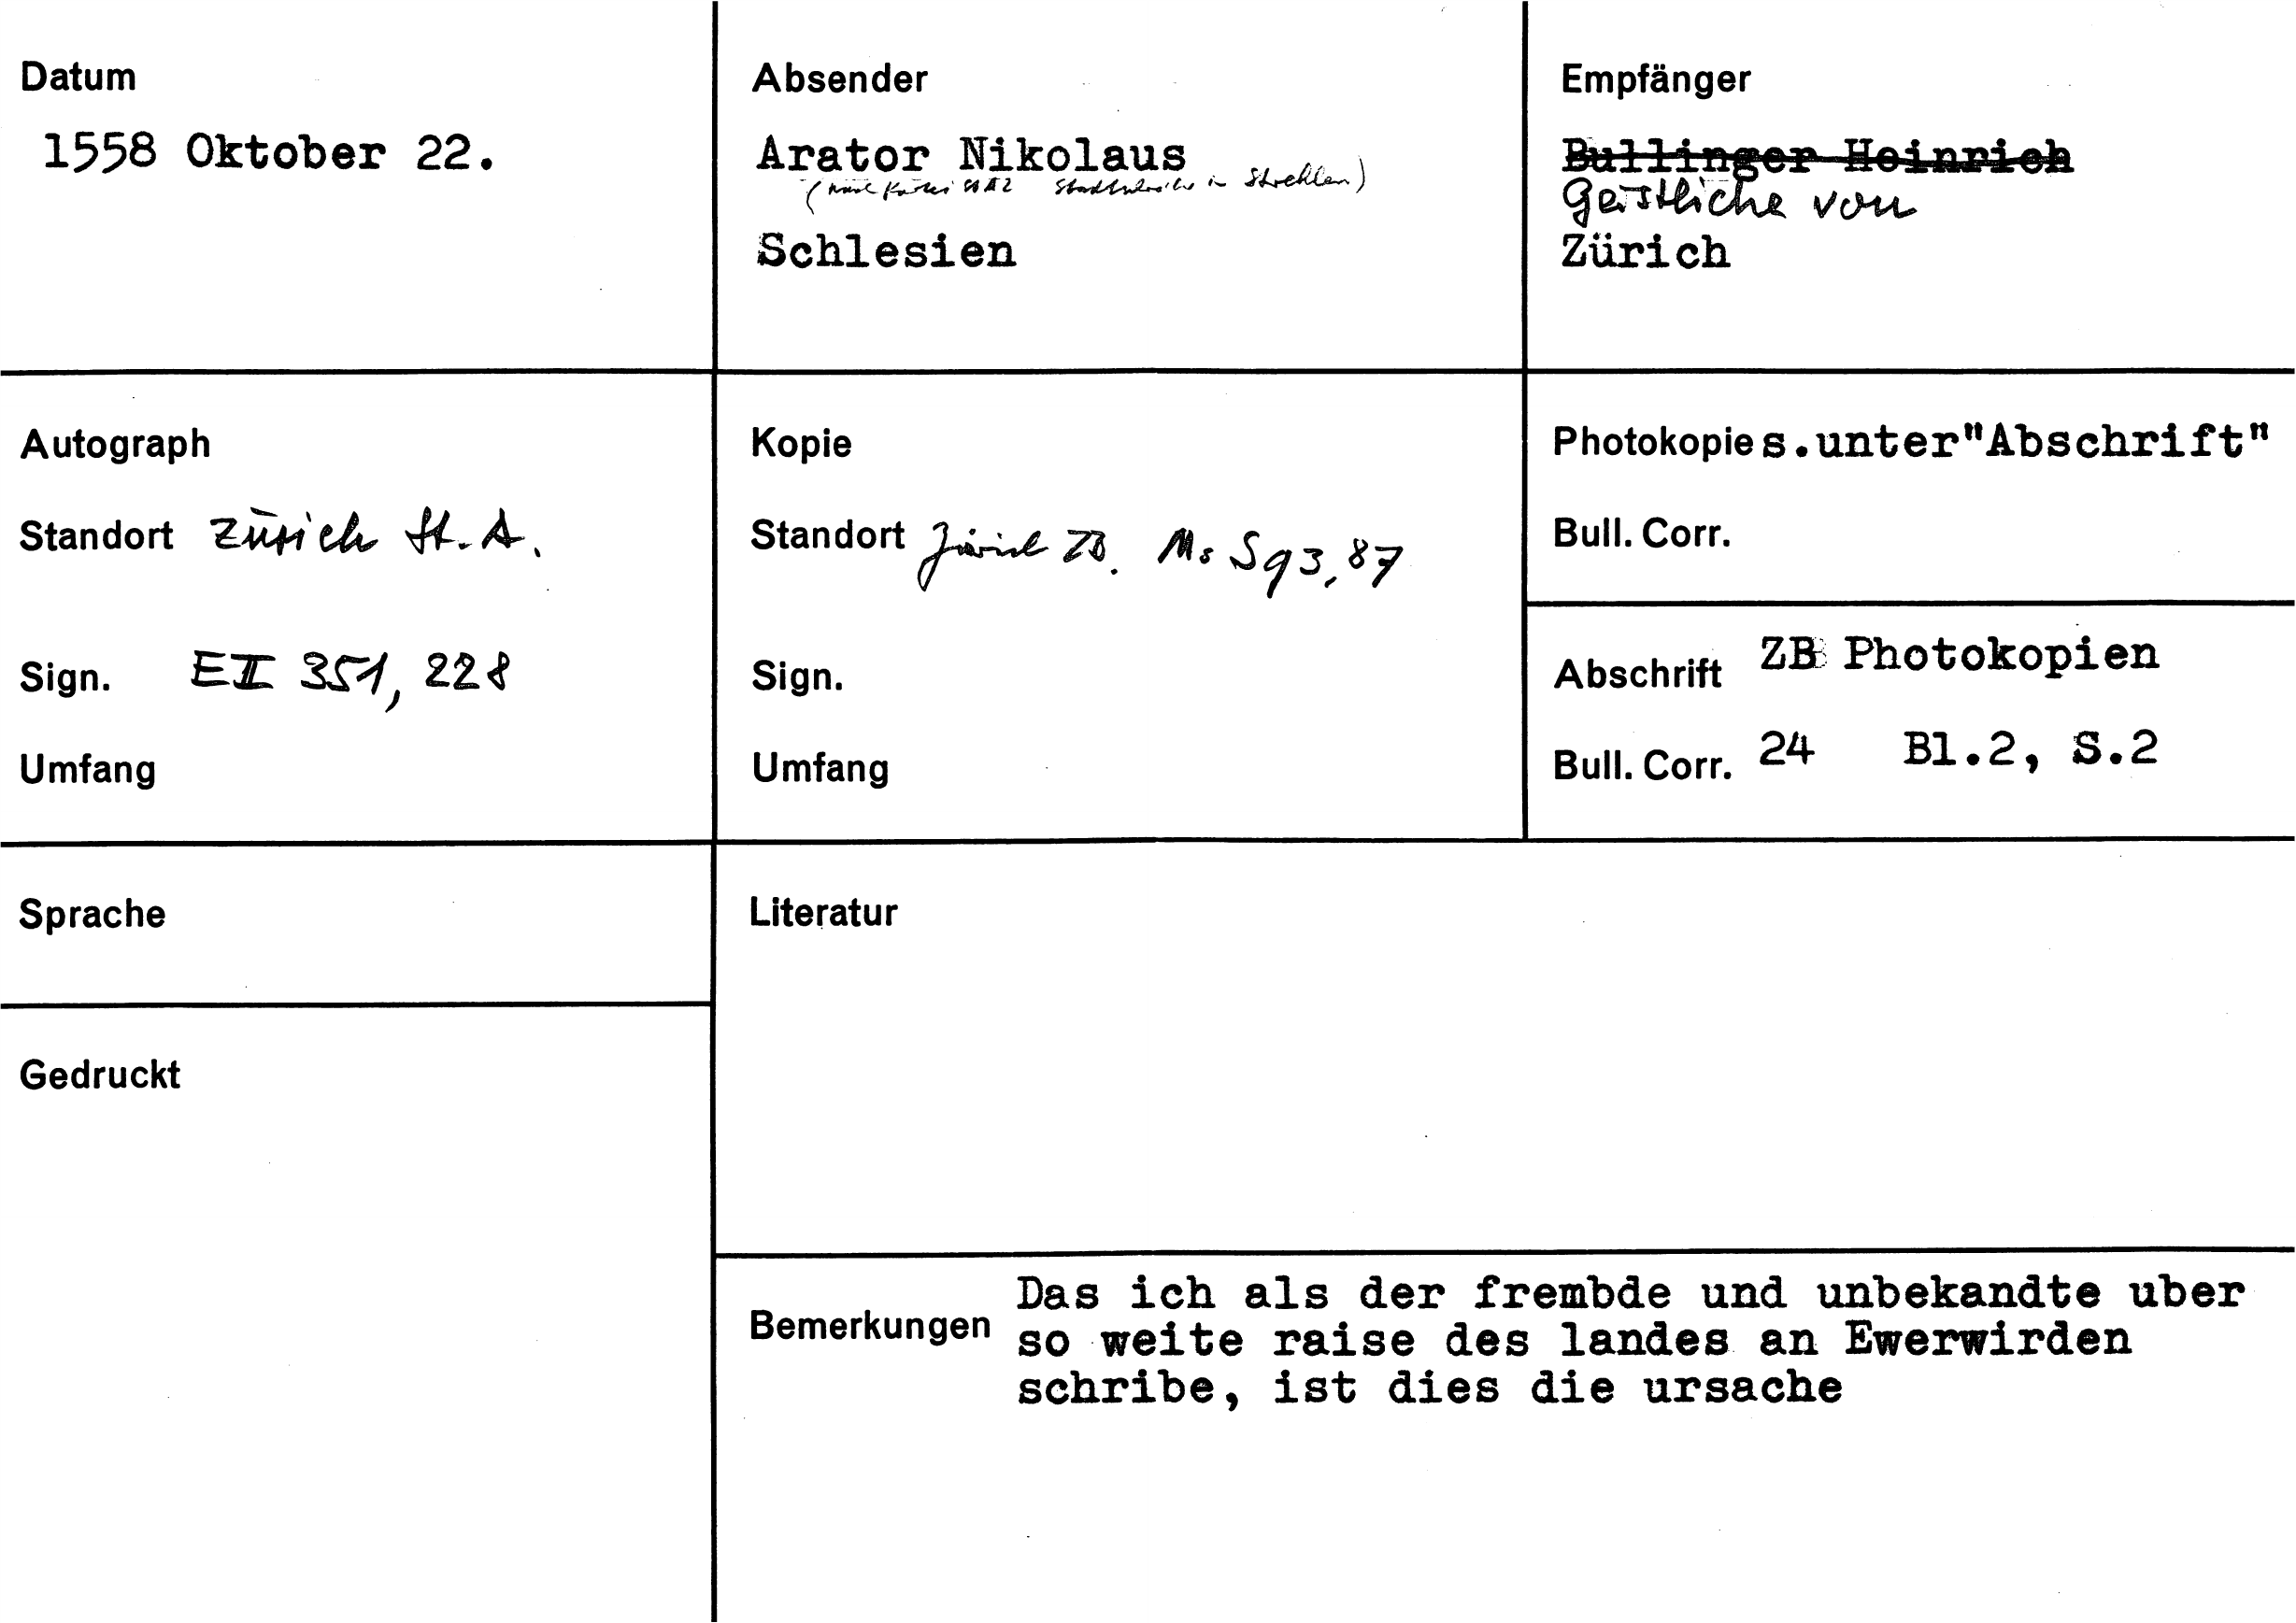 Datum
1558 Oktober 22.
Absender
Arator Nikolaus
(nach Kartei StAZ Stadtschreiber in Strehlen)
Schlesien
Empfänger
Bullinger Heinrich
Geistliche von
Zürich
Autograph
Standort Zürich St. A.
Sign. E II 351, 228
Umfang
Kopie
Standort Zürich ZB. Ms S 93, 87
Sign.
Umfang
Photokopie s.unter"Abschrift"
Bull. Corr.
Abschrift ZB Photokopien
Bull. Corr. 24 Bl.2, S.2
Sprache
Gedruckt
Literatur
Bemerkungen
Das ich als der frembde und unbekandte uber
so weite raise des landes an Ewerwirden
schribe, ist dies die ursache